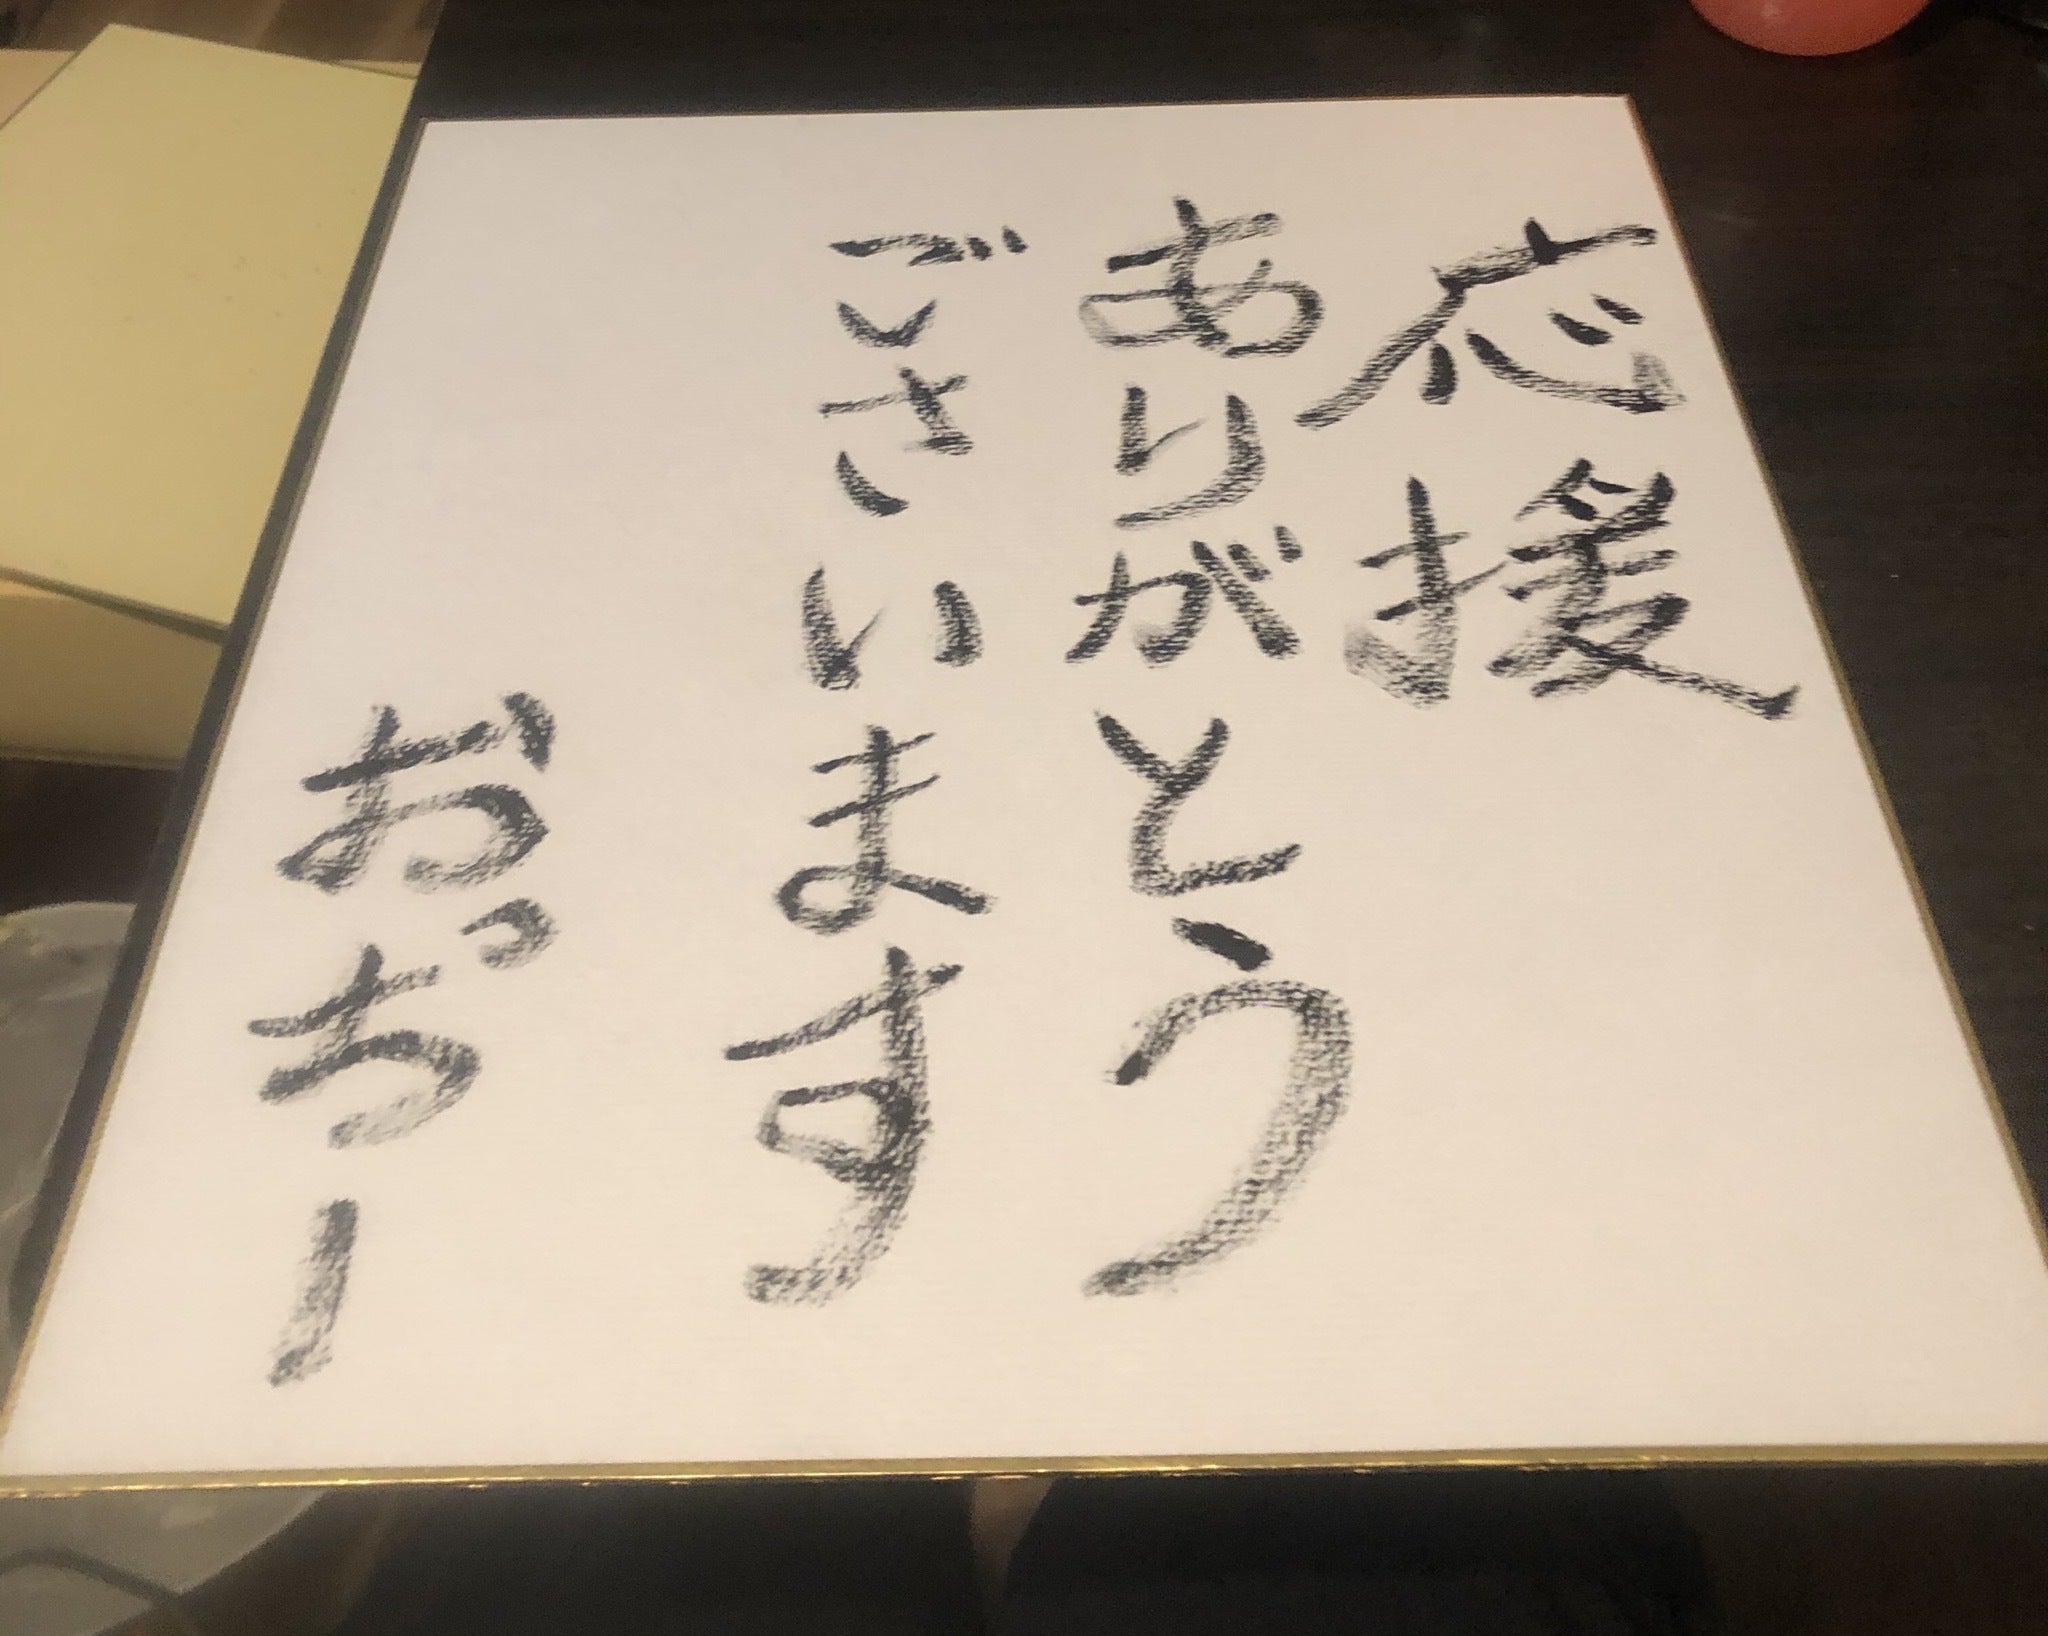 応援
ありがとう
ごさいます
おっちー